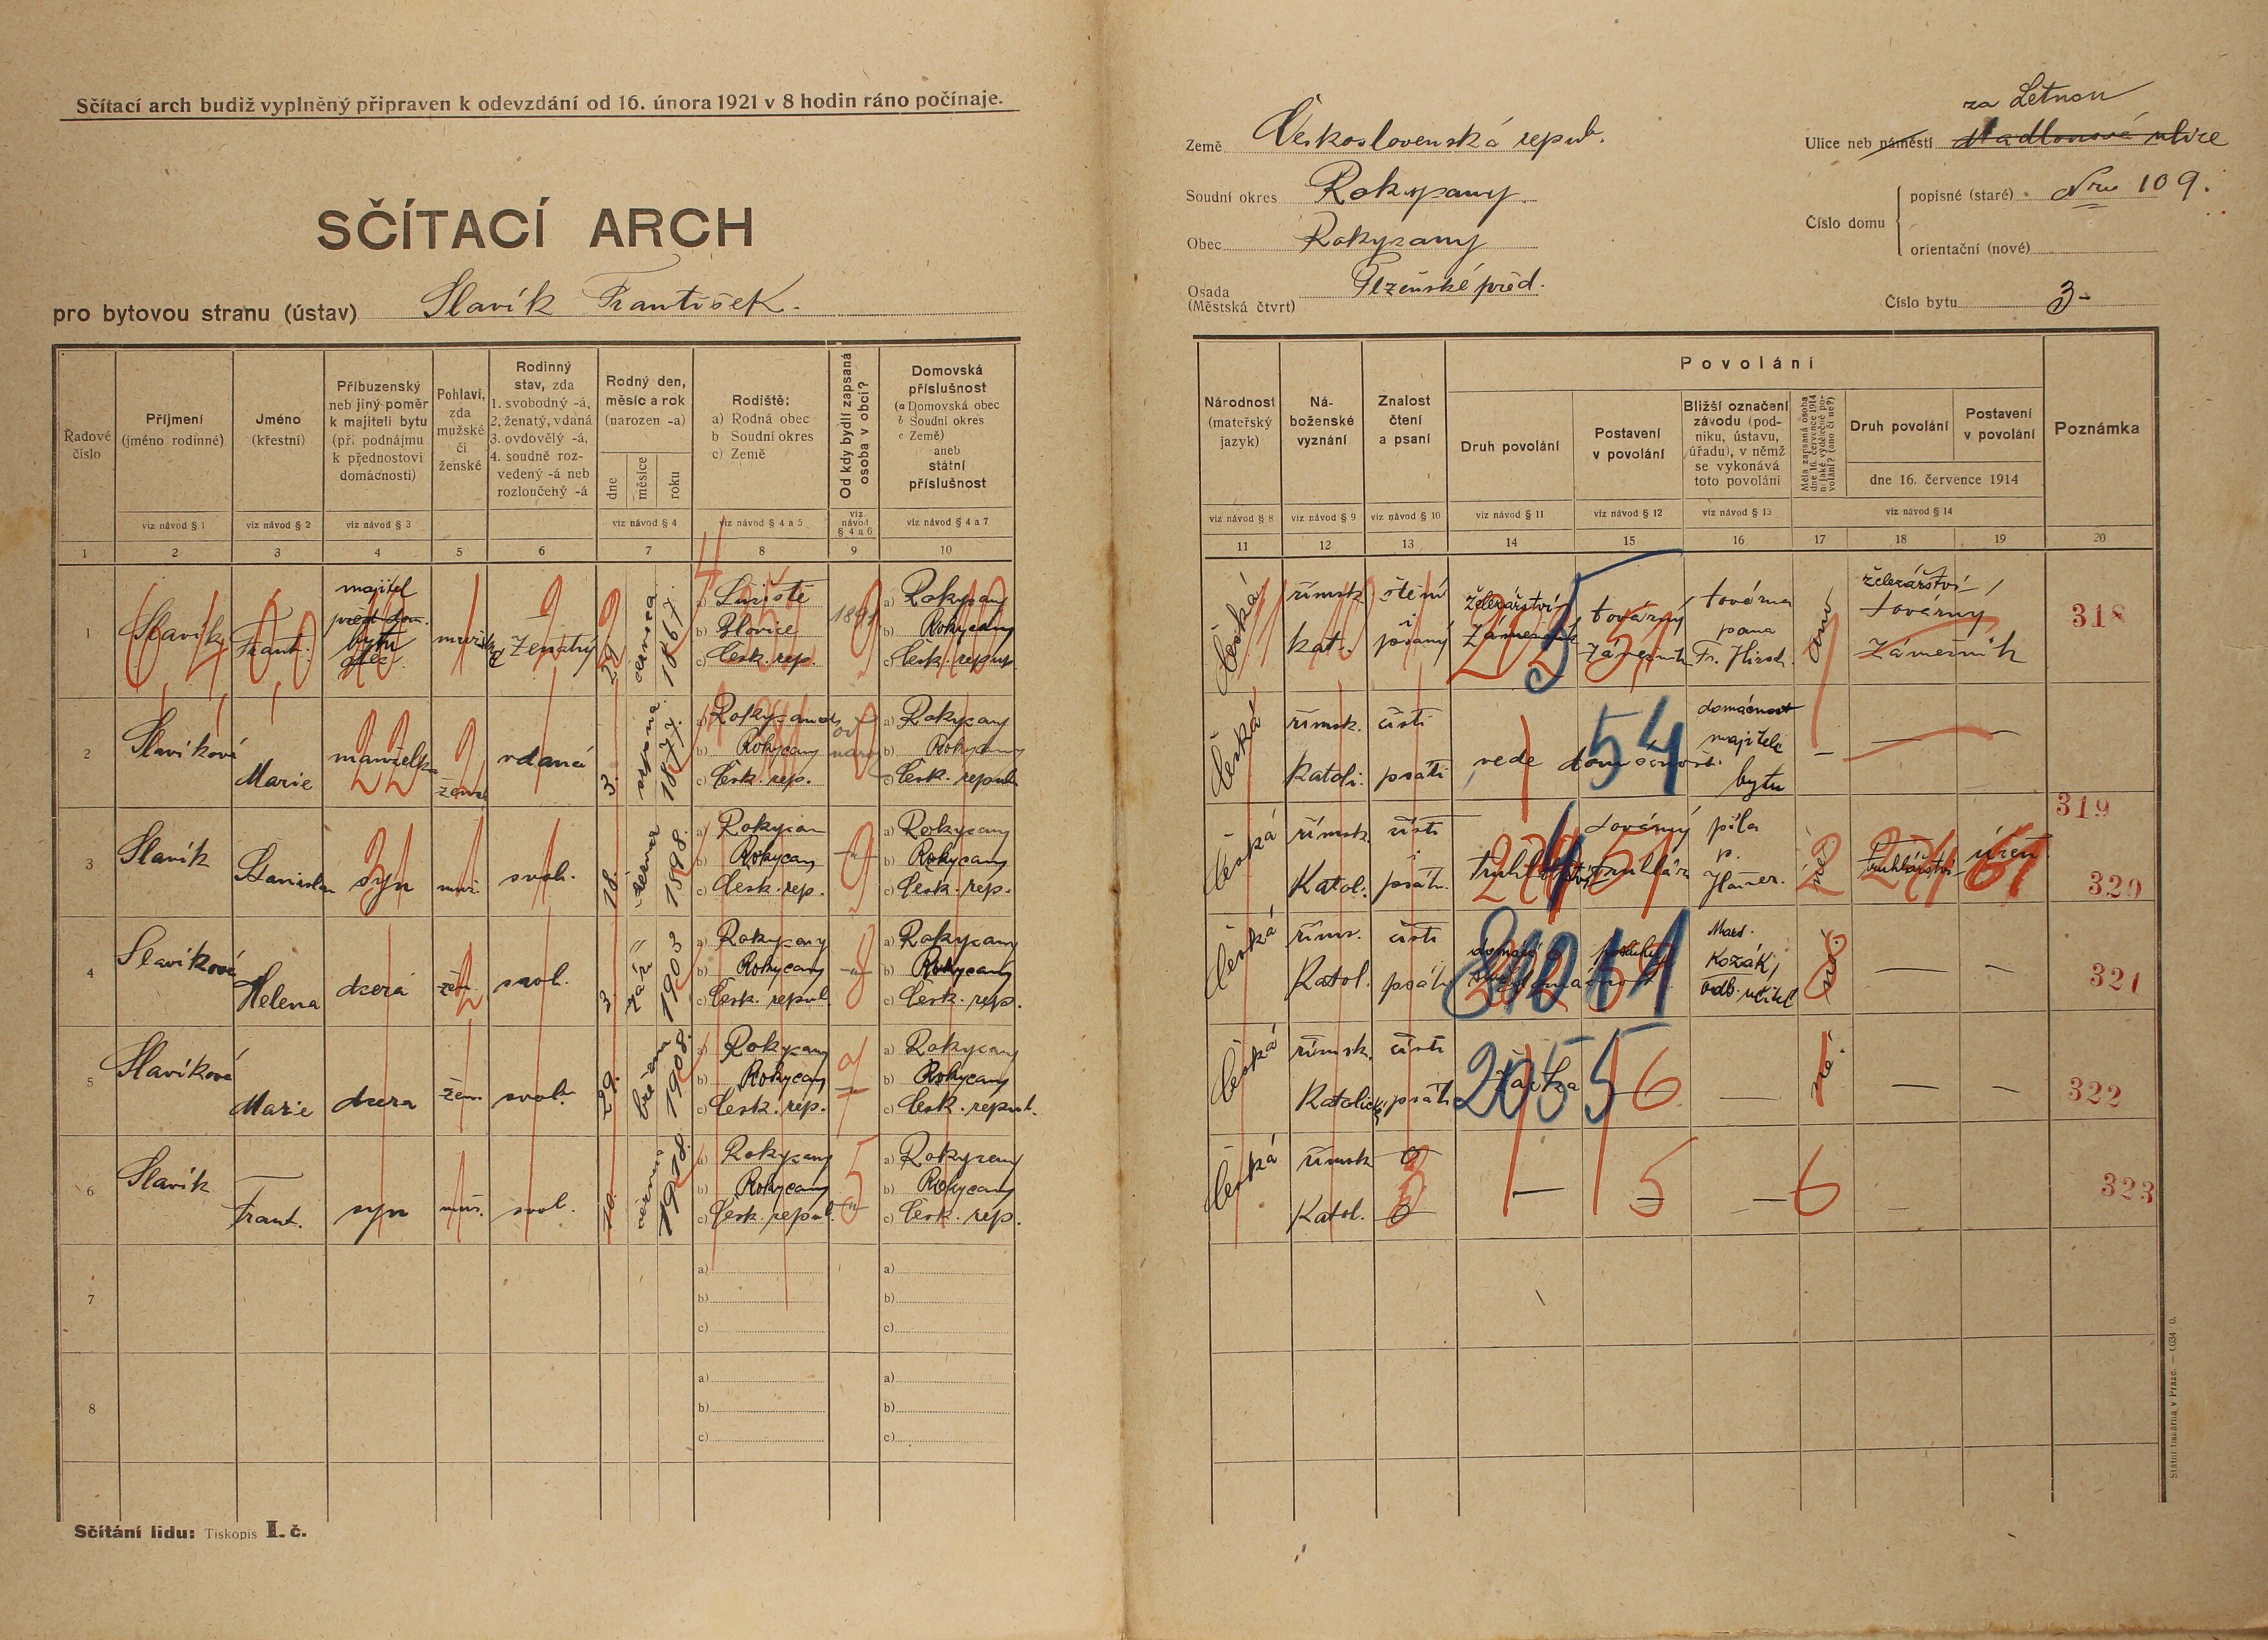 Sčítací arch budiž vyplněný připraven k odevzdání od 16. února 1921 v 8 hodin ráno počínaje.
SČÍTACÍ ARCH
pro bytovou stranu (ústav) Slavík František.
Řadové číslo
Příjmení (jméno rodinné)
Jméno (křestní)
Příbuzenský neb jiný poměr k majiteli bytu (při podnájmu k přednostovi domácnosti)
Pohlaví, zda mužské či ženské
Rodinný stav, zda 1. svobodný -á, 2. ženatý, vdaná 3. ovdovělý -á, 4. soudně rozvedený -á neb rozloučený -á
Rodný den, měsíc a rok (narozen -a)
dne měsíce roku
Rodiště: a) Rodná obec b Soudní okres c) Země
Od kdy bydlí zapsaná osoba v obci?
Domovská příslušnost (a Domovská obec b Soudní okres c Země) aneb státní příslušnost
viz návod § 1 viz návod § 2 viz návod § 3 viz návod § 4 viz návod § 4 a 5 viz návod § 4 a 6 viz návod § 4 a 7
1 2 3 4 5 6 7 8 9 10
1 Slavík Frant. majitel bytu otec mužské ženatý 29 července 1867. a) b) Blovice c) Česk. rep. a) Rokycany b) Rokycany c) Česk. repub.
2 Slavíková Marie manželka žensk. vdaná 3. srpna 1877. a) Rokycany b) Rokycany c) Česk. rep. od naroz. a) Rokycany b) Rokycany c) Česk. repub.
3 Slavík Stanislav syn muž. svob. 18. června 1898. a) Rokycan b) Rokycany c) Česk. rep. -"- a) Rokycany b) Rokycany c) Česk. rep.
4 Slavíková Helena dcera žen. svob. 3. září 1903 a) Rokycany b) Rokycany c) Česk. repub. -"- a) Rokycany b) Rokycany c) Česk. rep.
5 Slavíková Marie dcera žen. svob. 29. března 1908. a) Rokycany b) Rokycany c) Česk. rep. a) Rokycany b) Rokycany c) Česk. repub.
6 Slavík Frant. syn muž. svob. 10. 1918. a) Rokycany b) Rokycany c) Česk. repub. -"- a) Rokycany b) Rokycany c) Česk. rep.
7 a) b) c) a) b) c)
8 a) b) c) a) b) c)
Sčítání lidu: Tiskopis I. č.
za Letnou
Země Československá repub.
Ulice neb náměstí Madlonová ulice
Soudní okres Rokycany
Číslo domu
popisné (staré) Nro 109.
Obec Rokycany
orientační (nové)
Osada (Městská čtvrt) Plzeňské před.
Číslo bytu 3-
Národnost (mateřský jazyk)
Náboženské vyznání
Znalost čtení a psaní
Povolání
Druh povolání
Postavení v povolání
Bližší označení závodu (podniku, ústavu, úřadu), v němž se vykonává toto povolání
Měla zapsaná osoba dne 16. července 1914 nějaké výdělečné povolání? (ano či ne?)
Druh povolání
Postavení v povolání
dne 16. července 1914
Poznámka
viz návod § 8 viz návod § 9 viz návod § 10 viz návod § 11 viz návod § 12 viz návod § 13 viz návod § 14
11 12 13 14 15 16 17 18 19 20
česká římsk. kat. čtení i psaní železářství zámečník tovární zámečník továrna pana Fr. Hirsch. ano železářství tovární zámečník 318
česká římsk. katoli. čísti psáti vede domácnost domácnost majitele bytu — — — 319
česká římsk. Katol. čísti psáti truhlářství tovární truhlář pila p. ne truhlářství učen 320
česká říms. Katol. čísti psáti Kozák, odb. učitel ne — — 321
česká římsk. Katolick. čísti psáti žačka 2055 6 — ne — — 322
česká římsk Katol. — 5 — 6 323
Státní tiskárna v Praze.